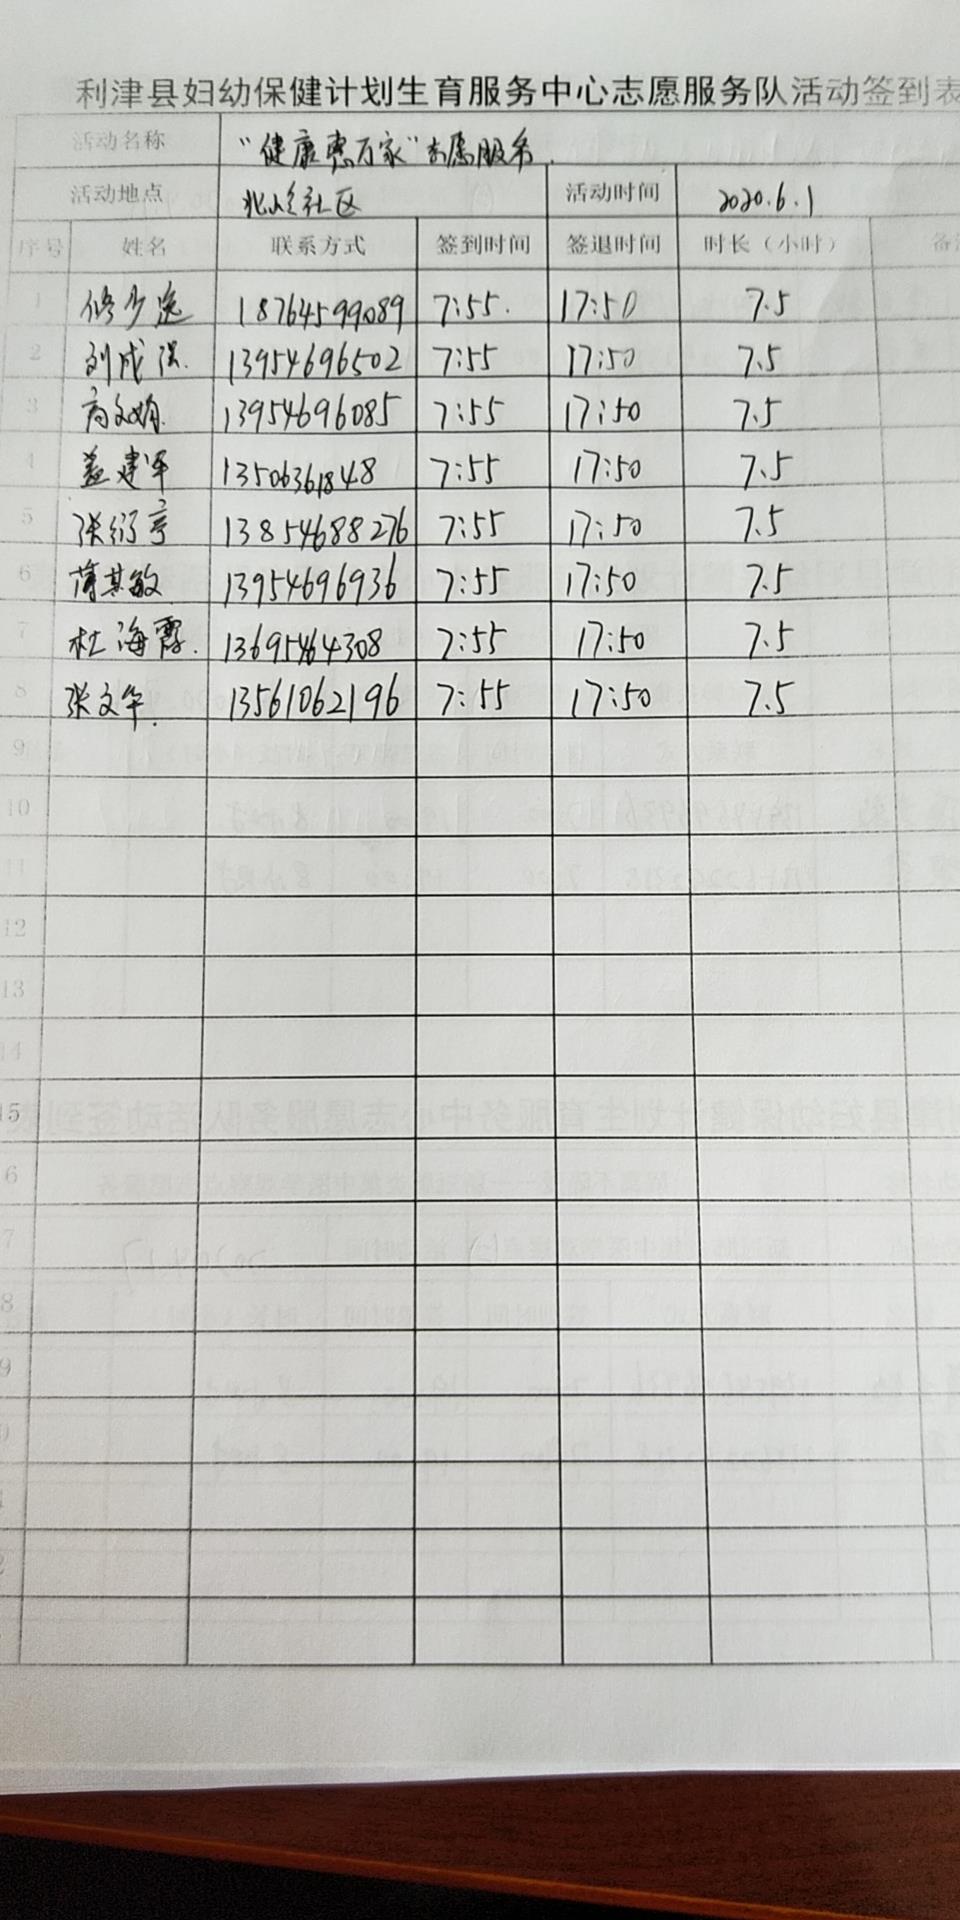 利津县妇幼保健计划生育服务中心志愿服务队活动签到表
活动名称 "健康惠万家"志愿服务.
活动地点 北岭社区 活动时间 2020.6.1
序号 姓名 联系方式 签到时间 签退时间 时长（小时） 备
1 修少选 18764599089 7:55. 17:50 7.5
2 刘成强. 13954696502 7:55 17:50 7.5
3 高文娟. 13954696085 7:55 17:50 7.5
4 盖建军 13506361848 7:55 17:50 7.5
5 张绍亭 13854688276 7:55 17:50 7.5
6 薄其敏 13954696936 7:55 17:50 7.5
7 杜海霞. 13695464308 7:55 17:50 7.5
8 张文华. 13561062196 7:55 17:50 7.5
9
10
11
12
13
14
15
6
7
8
9
0
2